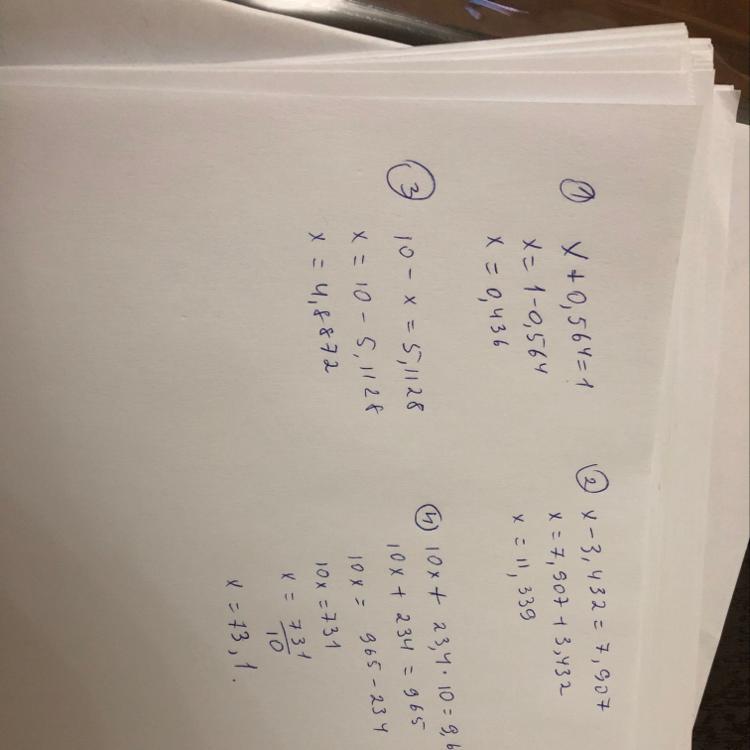 ① x + 0,564 = 1
x = 1 - 0,564
x = 0,436
② x - 3,432 = 7,907
x = 7,907 + 3,432
x = 11,339
③ 10 - x = 5,1128
x = 10 - 5,1128
x = 4,8872
④ 10x + 23,4 · 10 = 9,6
10x + 234 = 965
10x = 965 - 234
10x = 731
x = 731/10
x = 73,1.